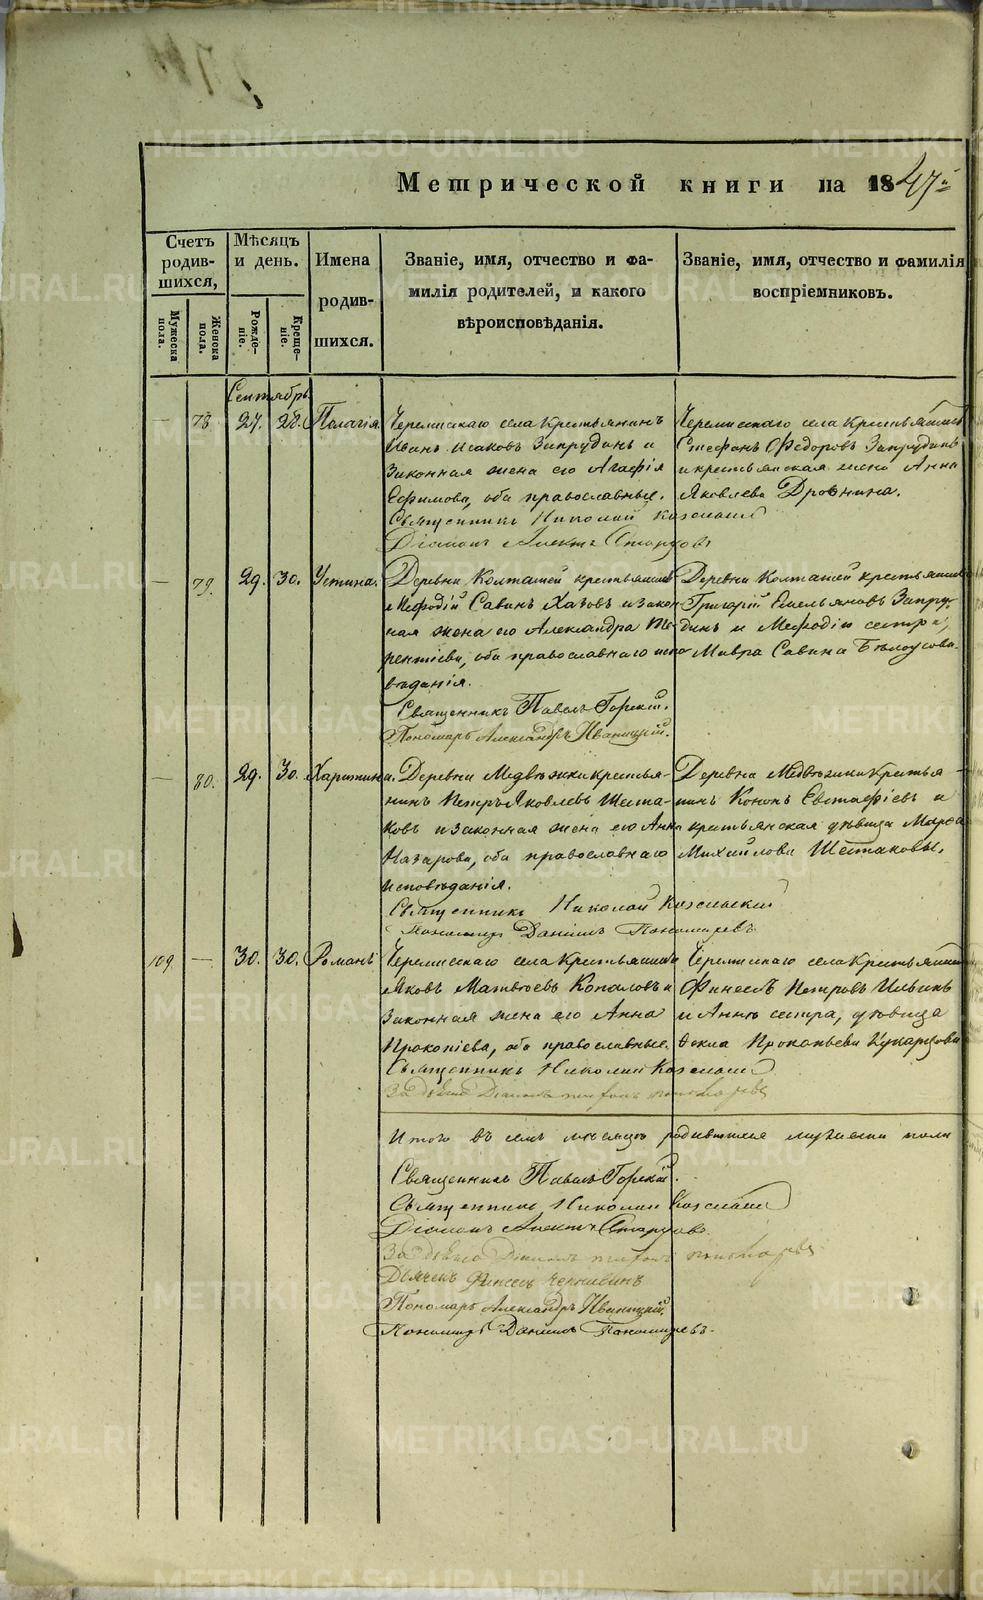 Метрической книги на 1847й
Счетъ родившихся,
Мѣсяцъ и день.
Имена родившихся.
Званіе, имя, отчество и фамилія родителей, и какого вѣроисповѣданія.
Званіе, имя, отчество и фамилія воспріемниковъ.
Мужеска пола.
Женска пола.
Рожденіе.
Крещеніе.
Сентябрь
— 78. 27. 28. Пелагія
Черемискаго села крестьянинъ
Иванъ Исаковъ Запрудинъ и
Законная жена его Агафія
Ефимова, оба православные.
Священникъ Николай
Діаконъ
Черемискаго села крестьянинъ
Стефанъ Федоровъ Запрудинъ
и крестьянская жена Анна
Яковлева
— 79. 29. 30. Устина.
Деревни Колташей крестьянинъ
Мефодій Савинъ Хазовъ и закон
ная жена его Александра Те-
рентіева, оба православнаго испо
вѣданія.
Священникъ Павелъ Горскій.
Пономарь Александръ Иваницкій.
Деревни Колташей крестьянинъ
Григорій Емельяновъ Запру-
динъ и Мефодія сестра,
Мавра Савина Бѣлоусова.
— 80. 29. 30. Харитина.
Деревни Медвѣжки крестья-
нинъ Петръ Яковлевъ Шеста-
ковъ и законная жена его Анна
Назарова, оба православнаго
исповѣданія.
Священникъ Николай
Пономарь Даніилъ Пономаревъ
Деревни Медвѣжки крестья
нинъ Кононъ Евстафіевъ и
крестьянская дѣвица Марѳа
Михайлова Шестаковы.
109. — 30. 30. Романъ
Черемискаго села крестьянинъ
Яковъ Матвѣевъ Копаловъ и
Законная жена его Анна
Прокопіева, оба православные.
Священникъ Николай
Черемискаго села крестьянинъ
Финеесъ Петровъ Ильинъ
и Анны сестра, дѣвица
Ѳекла Прокопьева
Итого въ семъ мѣсяцѣ родившихся мужеска пола
Священникъ Павелъ Горскій.
Священникъ Николай
Діаконъ
Дьячекъ Финеесъ
Пономарь Александръ Иваницкій.
Пономарь Даніилъ Пономаревъ.
METRIKI.GASO-URAL.RU